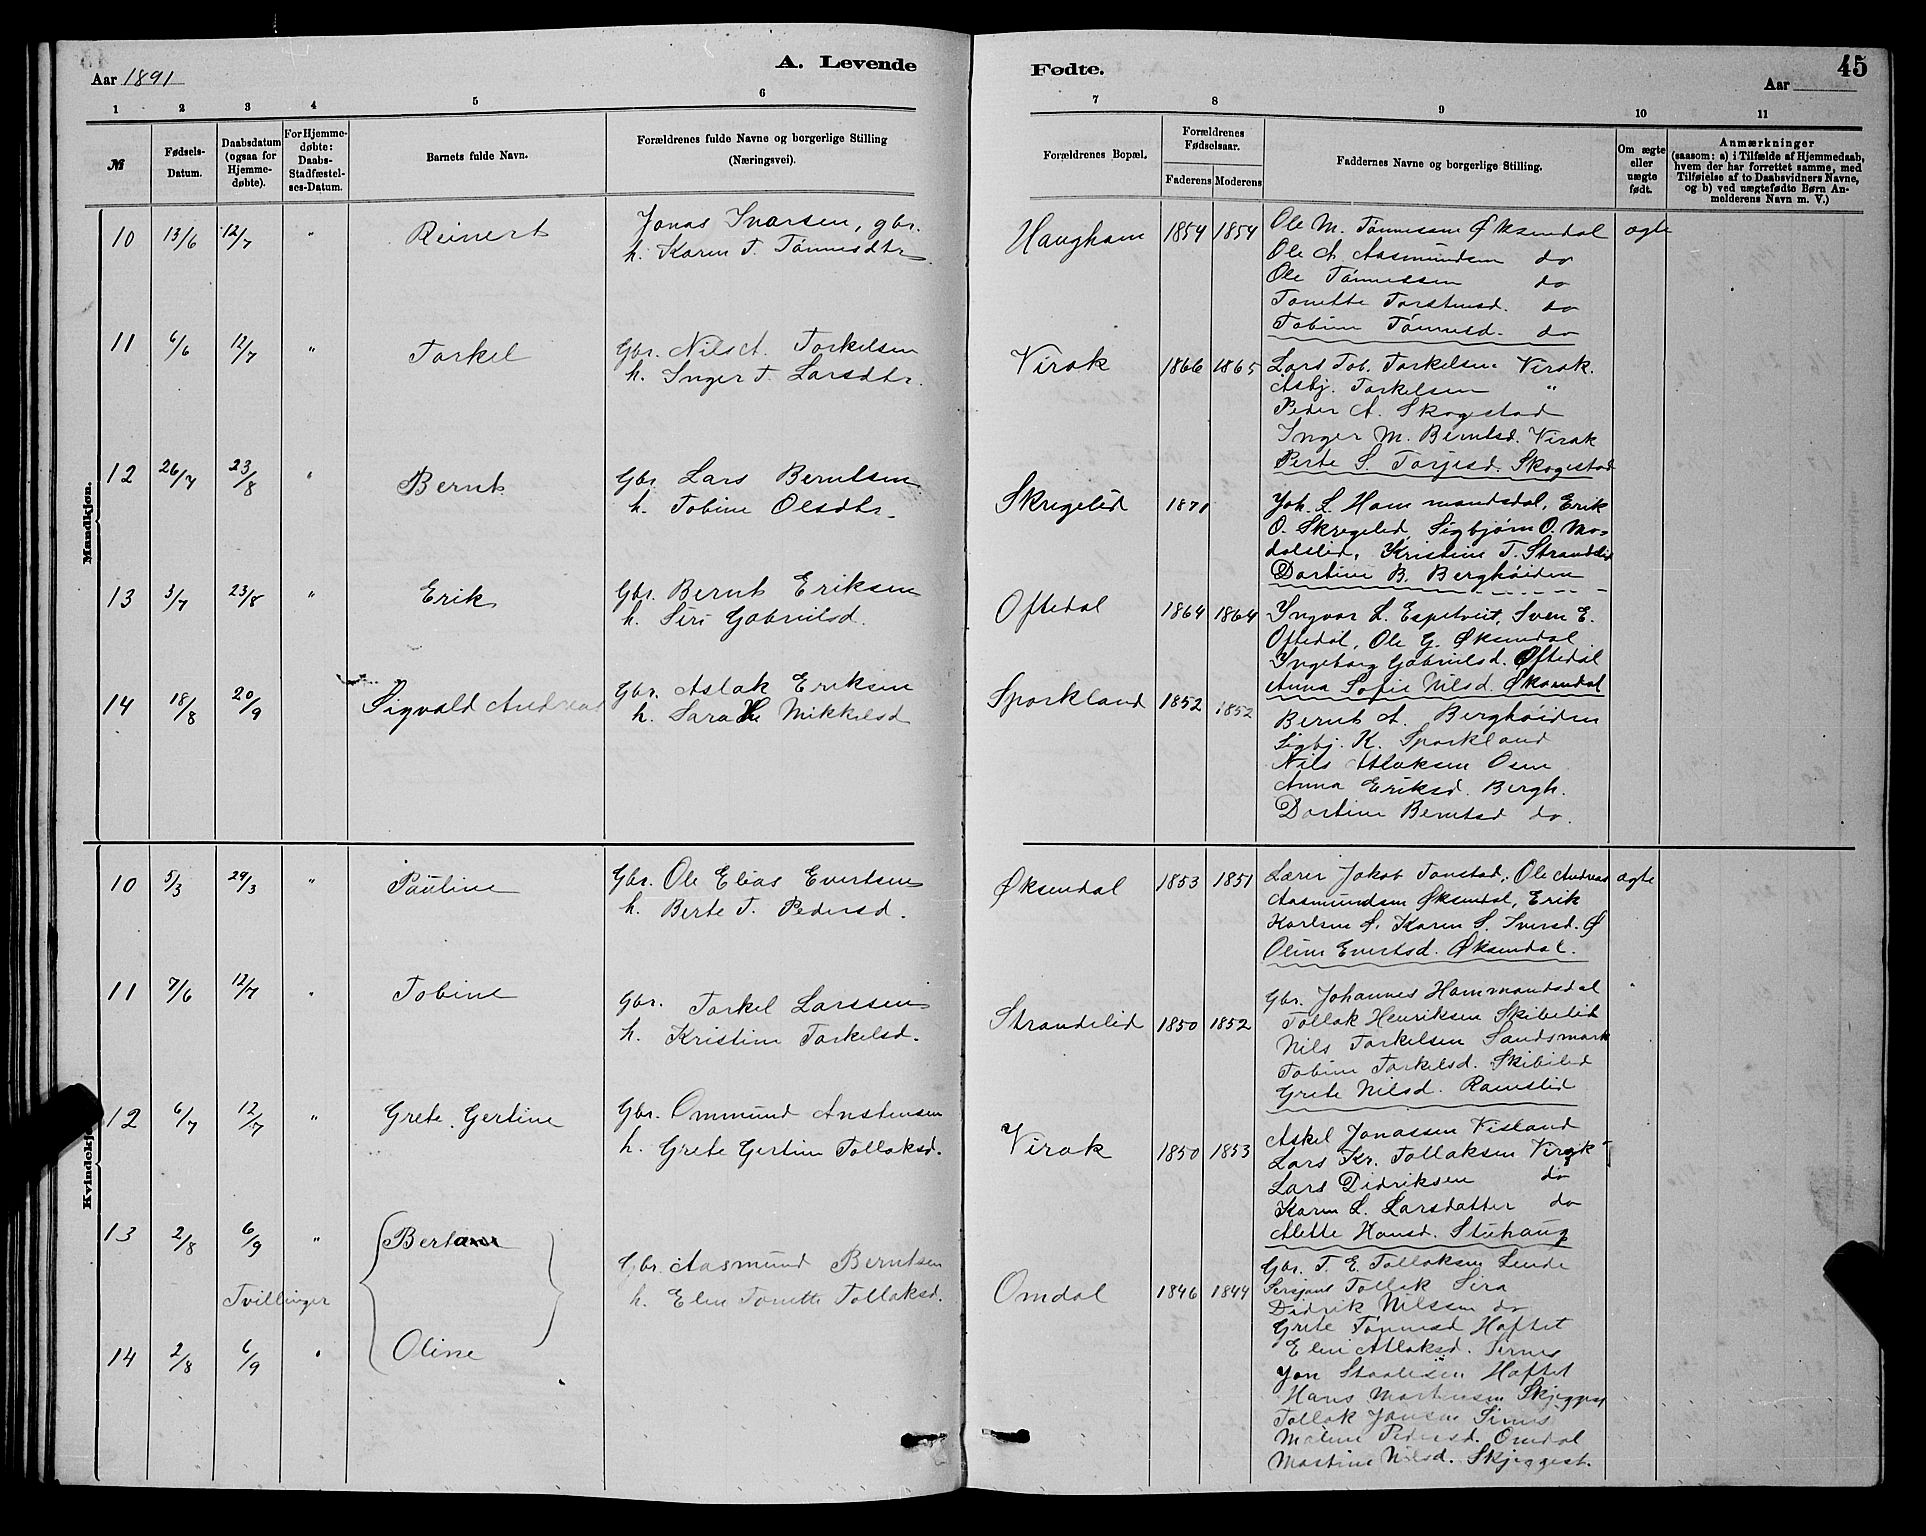 Aar 1891
A. Levende
Fødte.
45
Aar
1 2 3 4 5 6 7 8 9 10 11
№
Fødsels-Datum.
Daabsdatum (ogsaa for Hjemmedøbte).
For Hjemmedøbte: Daabs-Stadfæstelses-Datum.
Barnets fulde Navn.
Forældrenes fulde Navne og borgerlige Stilling (Næringsvei).
Forældrenes Bopæl.
Forældrenes Fødselsaar.
Faderens Moderens
Faddernes Navne og borgerlige Stilling.
Om ægte eller uægte født.
Anmærkninger
(saasom: a) i Tilfælde af Hjemmedaab, hvem der har forrettet samme, med Tilføielse af to Daabsvidners Navne, og b) ved uægtefødte Børn Anmelderens Navn m. V.)
Mandkjøn.
10 13/6 12/7 " Reinert
Jonas Ivarsen, gbr.
h. Karen T. Tønnesdtr.
Haugham 1854 1854
Ole M. Tønnesen Øksendal ægte
Ole A. Aasmundsen do
Ole Tønnessen do
Tonette Torstensd. do
Tobine Tønnesd. do
11 6/6 12/7 " Torkel
Gbr. Nils A. Torkelsen
h. Inger T. Larsdtr.
Virak 1866 1865
Lars Tob. Torkelsen Virak.
Asbj. Torkelsen "
Peder A. Skogestad
Inger M. Berntsd. Virak
Perte S. Torjesd. Skogestad
12 26/7 23/8 " Bernt
Gbr. Lars Berntsen
h. Tobine Olsdtr.
Skregelid 1871
Joh. L. Hammandsdal, Erik
O. Skregelid, Sigbjørn O. Mo-
dalslid, Kristine T. Strandelid
Dortine B. Berghøiden
13 3/7 23/8 " Erik
Gbr. Bernt Eriksen
h. Siri Gabrielsd.
Oftedal 1864 1864
Yngvar L. Espetveit, Sven E.
Oftedal, Ole G. Øksendal
Yngeborg Gabrielsd. Oftedal
Anna Sofie Nilsd. Øksendal
14 18/8 20/9 Sigvald Andreas
Gbr. Aslak Eriksen
h. Sara He Mikkelsd
Sporkland 1852 1852
Bernt A. Berghøiden
Sigbj. K. Sporkland
Nils Atlaksen Osen
Anna Eriksd. Bergh.
Dortine Berntsd do.
Kvindekjøn.
10 5/3 29/3 " Pauline
Gbr. Ole Elias Evertsen
h. Berte T. Pedersd.
Øksendal 1853 1851
Lærer Jakob Tonstad, Ole Andreas ægte
Aasmundsen Øksendal, Erik
Karlsen S. Karen S. Iversd. Ø
Oline Evertsd. Øksendal.
11 7/6 12/7 " Tobine
Gbr. Torkel Larssen
h. Kristine Torkelsd.
Strandelid 1850 1852
Gbr. Johannes Hammandsdal "
Tollak Henriksen Skibelid
Nils Torkelsen Sandsmark
Tobine Torkelsd. Skibelid
Grete Nilsd. Ramslid
12 6/7 12/7 " Grete Gertine
Gbr. Ommund Anstensen
h. Grete Gertine Tollaksd.
Virak 1850 1853
Askel Jonassen Visland
Lars Kr. Tollaksen Virak
Lars Didriksen do
Karen L. Larsdatter do
Alette Hansd. Stuhaug
13 2/8 6/9 " Bertane
Tvillinger
Gbr. Aasmund Berntsen
h. Elen Tonette Tollaksd.
Omdal 1846 1844
Gbr. T. E. Tollaksen Lende
Sersjant Tollak Sira
Didrik Nilssen do
Grete Tønnesd Haftet
Elen Atlaksd. Sirnes
14 2/8 6/9 " Oline
Jon Staalesen Haftet
Hans Mortensen Skjeggest
Tollak Jansen Sirnes
Malene Pedersd. Omdal
Martine Nilsd. Skjeggest.